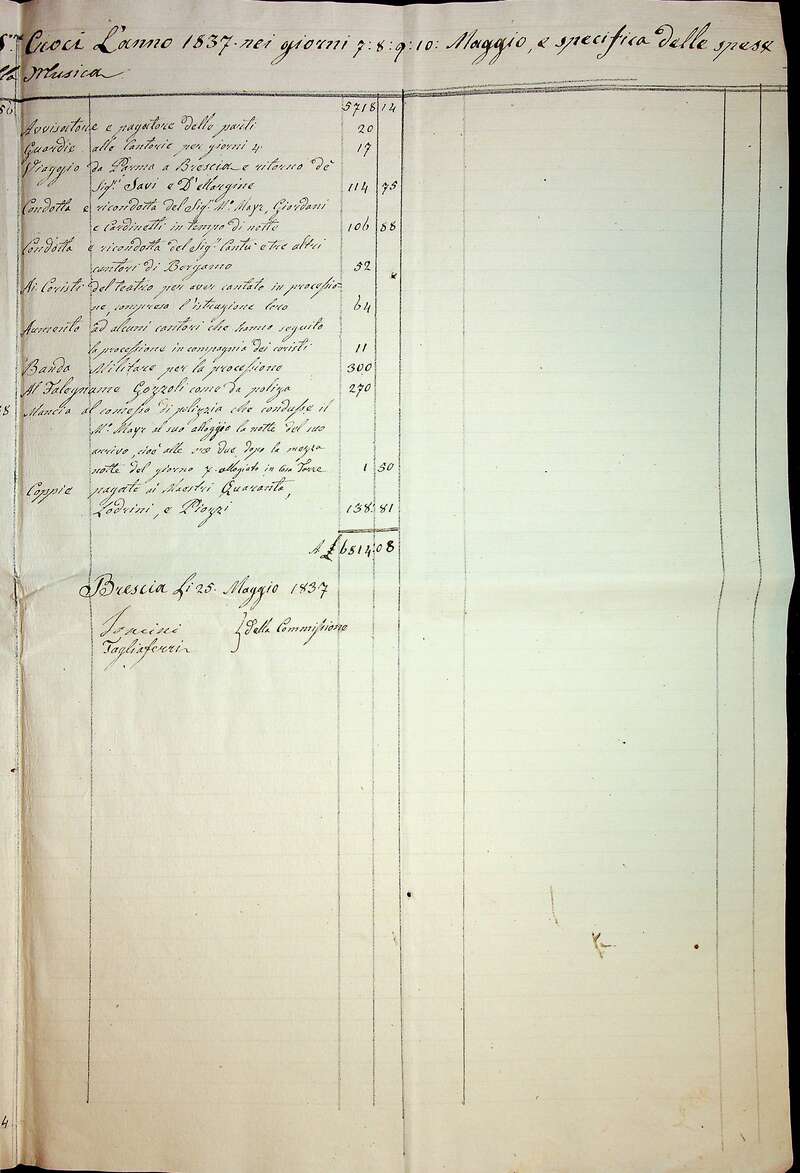 S.me Croci L'anno 1837. nei giorni 7: 8: 9: 10: Maggio, e specifica delle spese
lla Musica
5718 14
Avvisatore e pagatore delle parti 20
Guardie alle Cantorie per giorni 4 17
Viaggio da Parma a Brescia e ritorno dè
Sig.ri Savi e D'Margine 114 75
Condotta e ricondotta del Sig.r M.o Mayr, Giordani
e Cardinetti in tempo di notte 106 88
Condotta e ricondotta del Sig.r Cantù e tre altri
cantori di Bergamo 52
Ai Coristi del teatro per aver cantato in processio-
ne, compreso l'istruzione loro 64
Aumento ad alcuni cantori che hanno seguito
la processione in compagnia dei coristi 11
Banda Militare per la processione 300
Al Falegname Gozzoli come da poliza 270
Mancia al comesso di polizzia che condusse il
M.o Mayr al suo alloggio la notte del suo
arrivo, cioè alle ore due dopo la mezza
notte del giorno 7. allogiato in Casa Torre 1 50
Coppie pagate ai Maestri Quaranta,
Lodrini, e Piozzi 138: 81
A £ 6814: 08
Brescia Li 25. Maggio 1837
Soncini } della Commissione
Tagliaferri